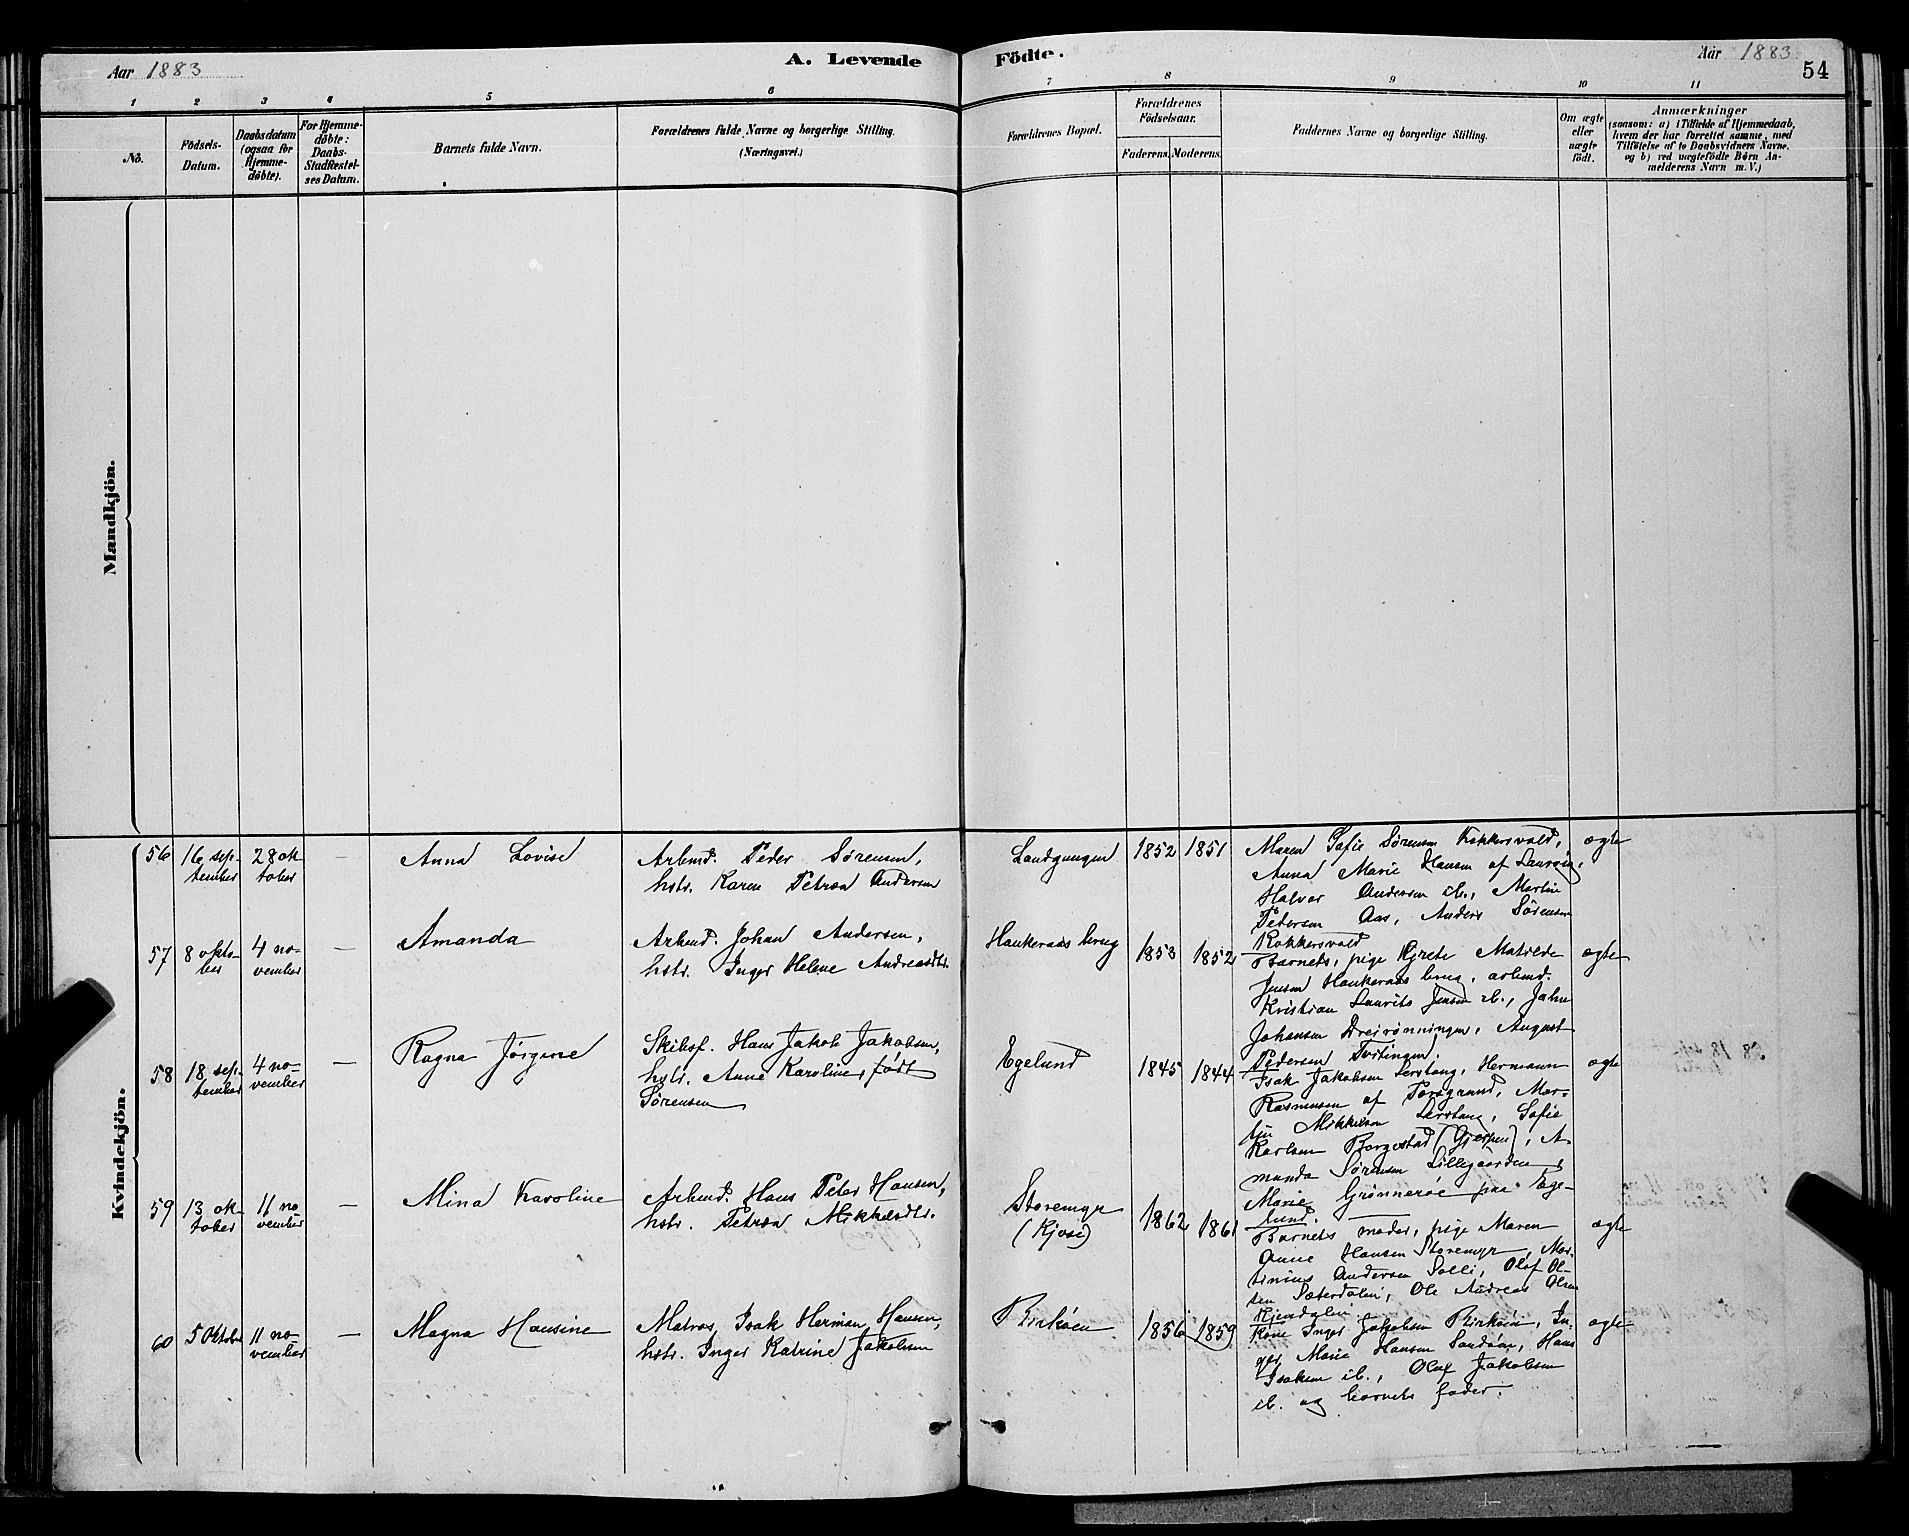 Aar 1883
A. Levende Födte.
Aar 1883
54
1 2 3 4 5 6 7 8 9 10 11
No.
Födsels-
Datum.
Daabsdatum
(ogsaa for
Hjemme-
döbte).
For Hjemme-
döbte:
Daabs-
Stadfæstel-
ses Datum.
Barnets fulde Navn.
Forældrenes fulde Navne og borgerlige Stilling.
(Næringsvei.)
Forældrenes Bopæl.
Forældrenes
Födselsaar.
Faderens. Moderens.
Faddernes Navne og borgerlige Stilling.
Om ægte
eller
uægte
födt.
Anmærkninger
(saasom: a) i Tilfælde af Hjemmedaab,
hvem der har forrettet samme, med
Tilföielse af to Daabsvidners Navne.
og b) ved uægtefödte Börn An-
melderens Navn m. V.)
Mandkjön.
Kvindekjön.
56
16 sep-
tember
28 ok
tober
—
Anna Lovise
Arbmd. Peder Sørensen,
hstr. Karen Petrea Andersen
Landgangen
1852
1851
Maren Sofie Sørensen Kokkersvold,
Anna Marie Hansen af Laurvig,
Halvor Andersen ib., Martin
Pedersen Aas, Anders Sørensen
Kokkersvold
ægte
57
8 okto-
ber
4 no-
vember
—
Amanda
Arbmd. Johan Andersen,
hstr. Inger Helene Andreasdtr.
Haukeraas brug
1853
1852
Barnets, pige Grete Matilde
Jensen Haukeraas brug, arbmd.
Kristian Laurits Jensen ib., John
Johansen Dreirønningen, August
Pedersen Tvitingen.
ægte
58
18 sep-
tember
4 no-
vember
—
Ragna Jørgine
Skibsf. Hans Jakob Jakobsen,
hstr. Anne Karoline, født
Sørensen
Egelund
1845
1844
Isak Jakobsen Lerstang, Hermann
Rasmussen af Porsgrund, Mar-
Mikkelsen Lerstang, Sofie
Karlsen Borgestad (Gjerpen), A-
manda Sørensen Lillegaarden,
Marie Grønnerøe paa Ege-
lund.
ægte
59
13 ok-
tober
11 no
vember
—
Mina Karoline
Arbmd. Hans Peter Hansen,
hstr. Petrea Mikkelsdtr.
Storemyr
(Kjose)
1862
1861
Barnets moder, pige Maren
Anne Hansen Storemyr, Mar-
tinius Andersen Solli, Olaf Ol-
sen Sæterdalen, Ole Andreas Olsen
Kjendalen
ægte
60
5 Oktober
11 no-
vember
—
Magna Hansine
Matros Isak Herman Hansen,
hstr. Inger Katrine Jakobsen
Birkøen
1856
1859
Kone Inger Jakobsen Birkøen, In-
ger Marie Hansen Sandøen, Hans
Isaksen ib., Oluf Jakobsen
ib. og barnets fader.
ægte